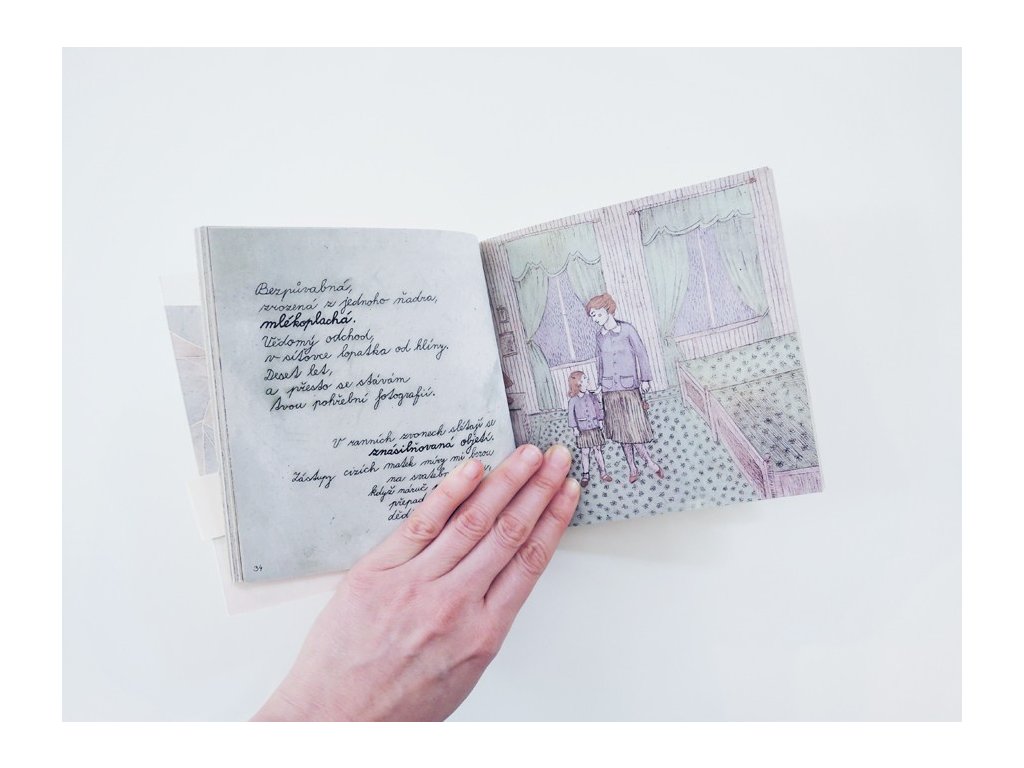 Bezpůvabná,
zrozená z jednoho ňadra,
mlékoplachá.
Vědomý odchod,
v síťovce lopatka od hlíny.
Deset let,
a přesto se stávám
tvou pohřební fotografií.
V ranních zvonech slétají se
znásilňovaná objetí.
Zástupy cizích matek míry mi berou
na svatební
když náruč
přepad
dědi
34